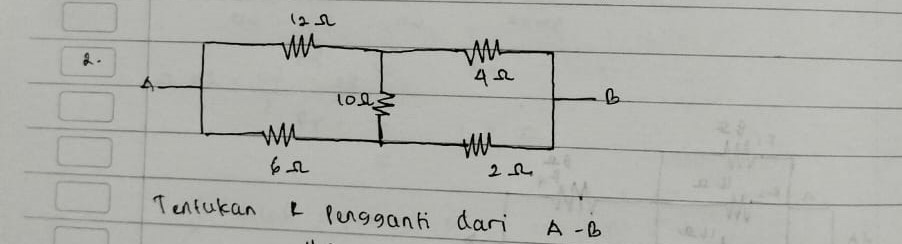 12 Ω
2.
4 Ω
A
10Ω
B
6 Ω
2 Ω
Tentukan R Pengganti dari A - B